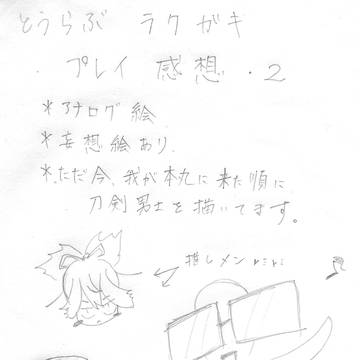 とうらぶ ラクガキ
・プレイ感想・2
*アナログ絵
*妄想絵あり.
*.ただ今、我が本丸に来た順に
刀剣男士を描いてます。
推しメン